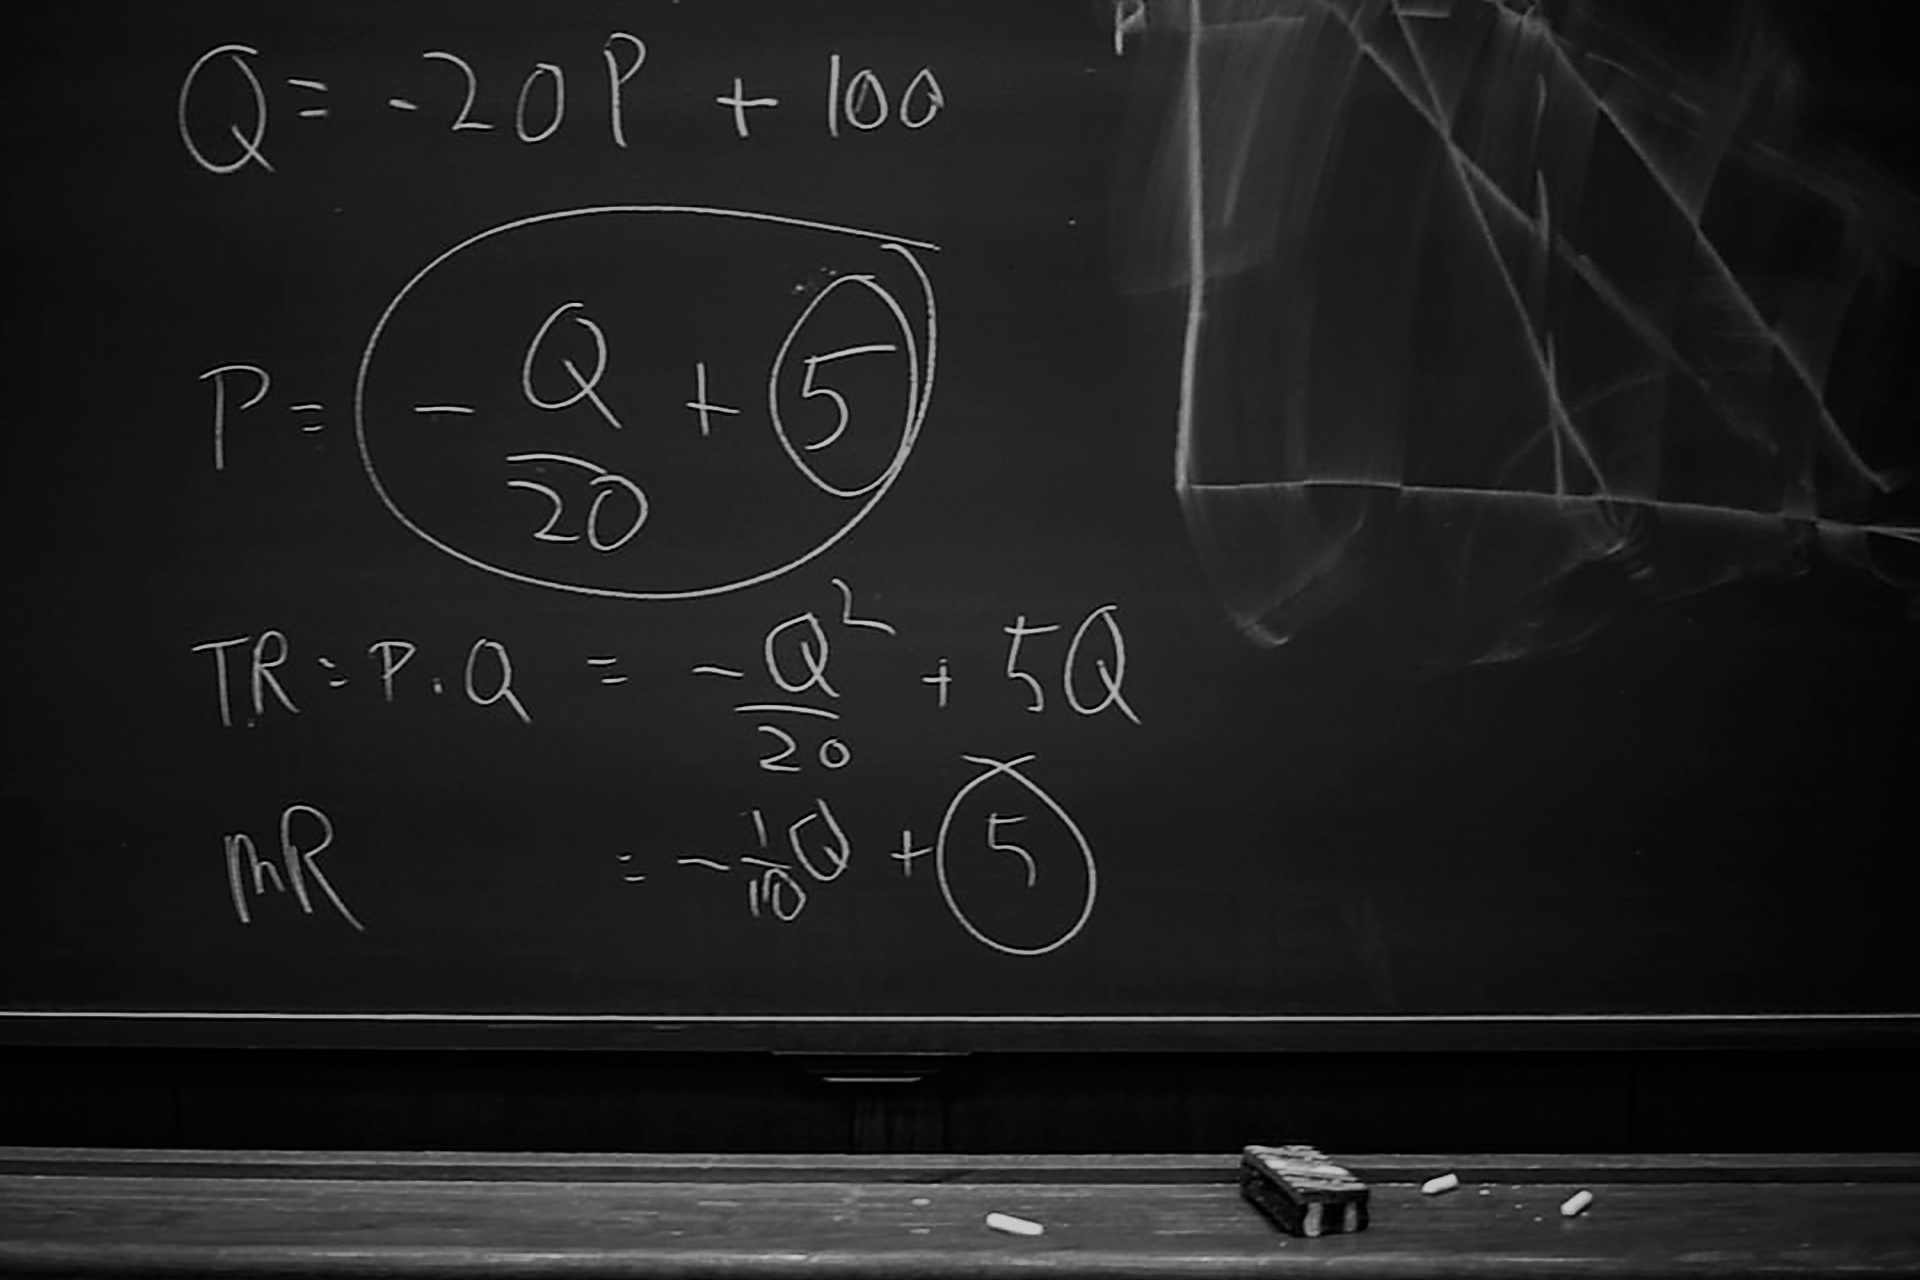 Q = -20P + 100
P
P = - Q/20 + 5
TR = P . Q = - Q²/20 + 5Q
MR = - 1/10 Q + 5